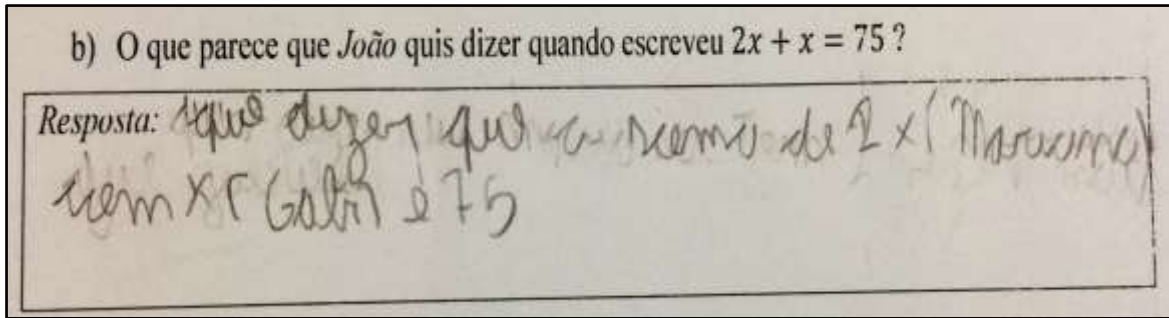 b) O que parece que João quis dizer quando escreveu 2x + x = 75 ?
Resposta: que dizer que a soma de 2x (Mariana)
com x (Gabi) é 75